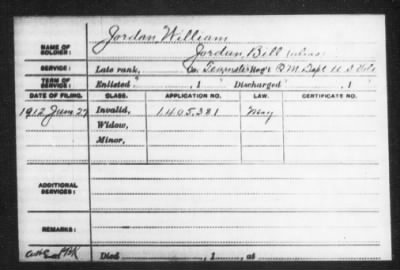 NAME OF SOLDIER: Jordan, William
Jordan, Bill (alias)
SERVICE: Late rank, Co. Teamster Reg't Q M Dept U S Vols
TERM OF SERVICE: Enlisted , 1 Discharged , 1
DATE OF FILING. CLASS. APPLICATION NO. LAW. CERTIFICATE NO.
1912 June 27 Invalid, 1.405.381 May
Widow,
Minor,
ADDITIONAL SERVICES:
REMARKS:
Died , 1 , at